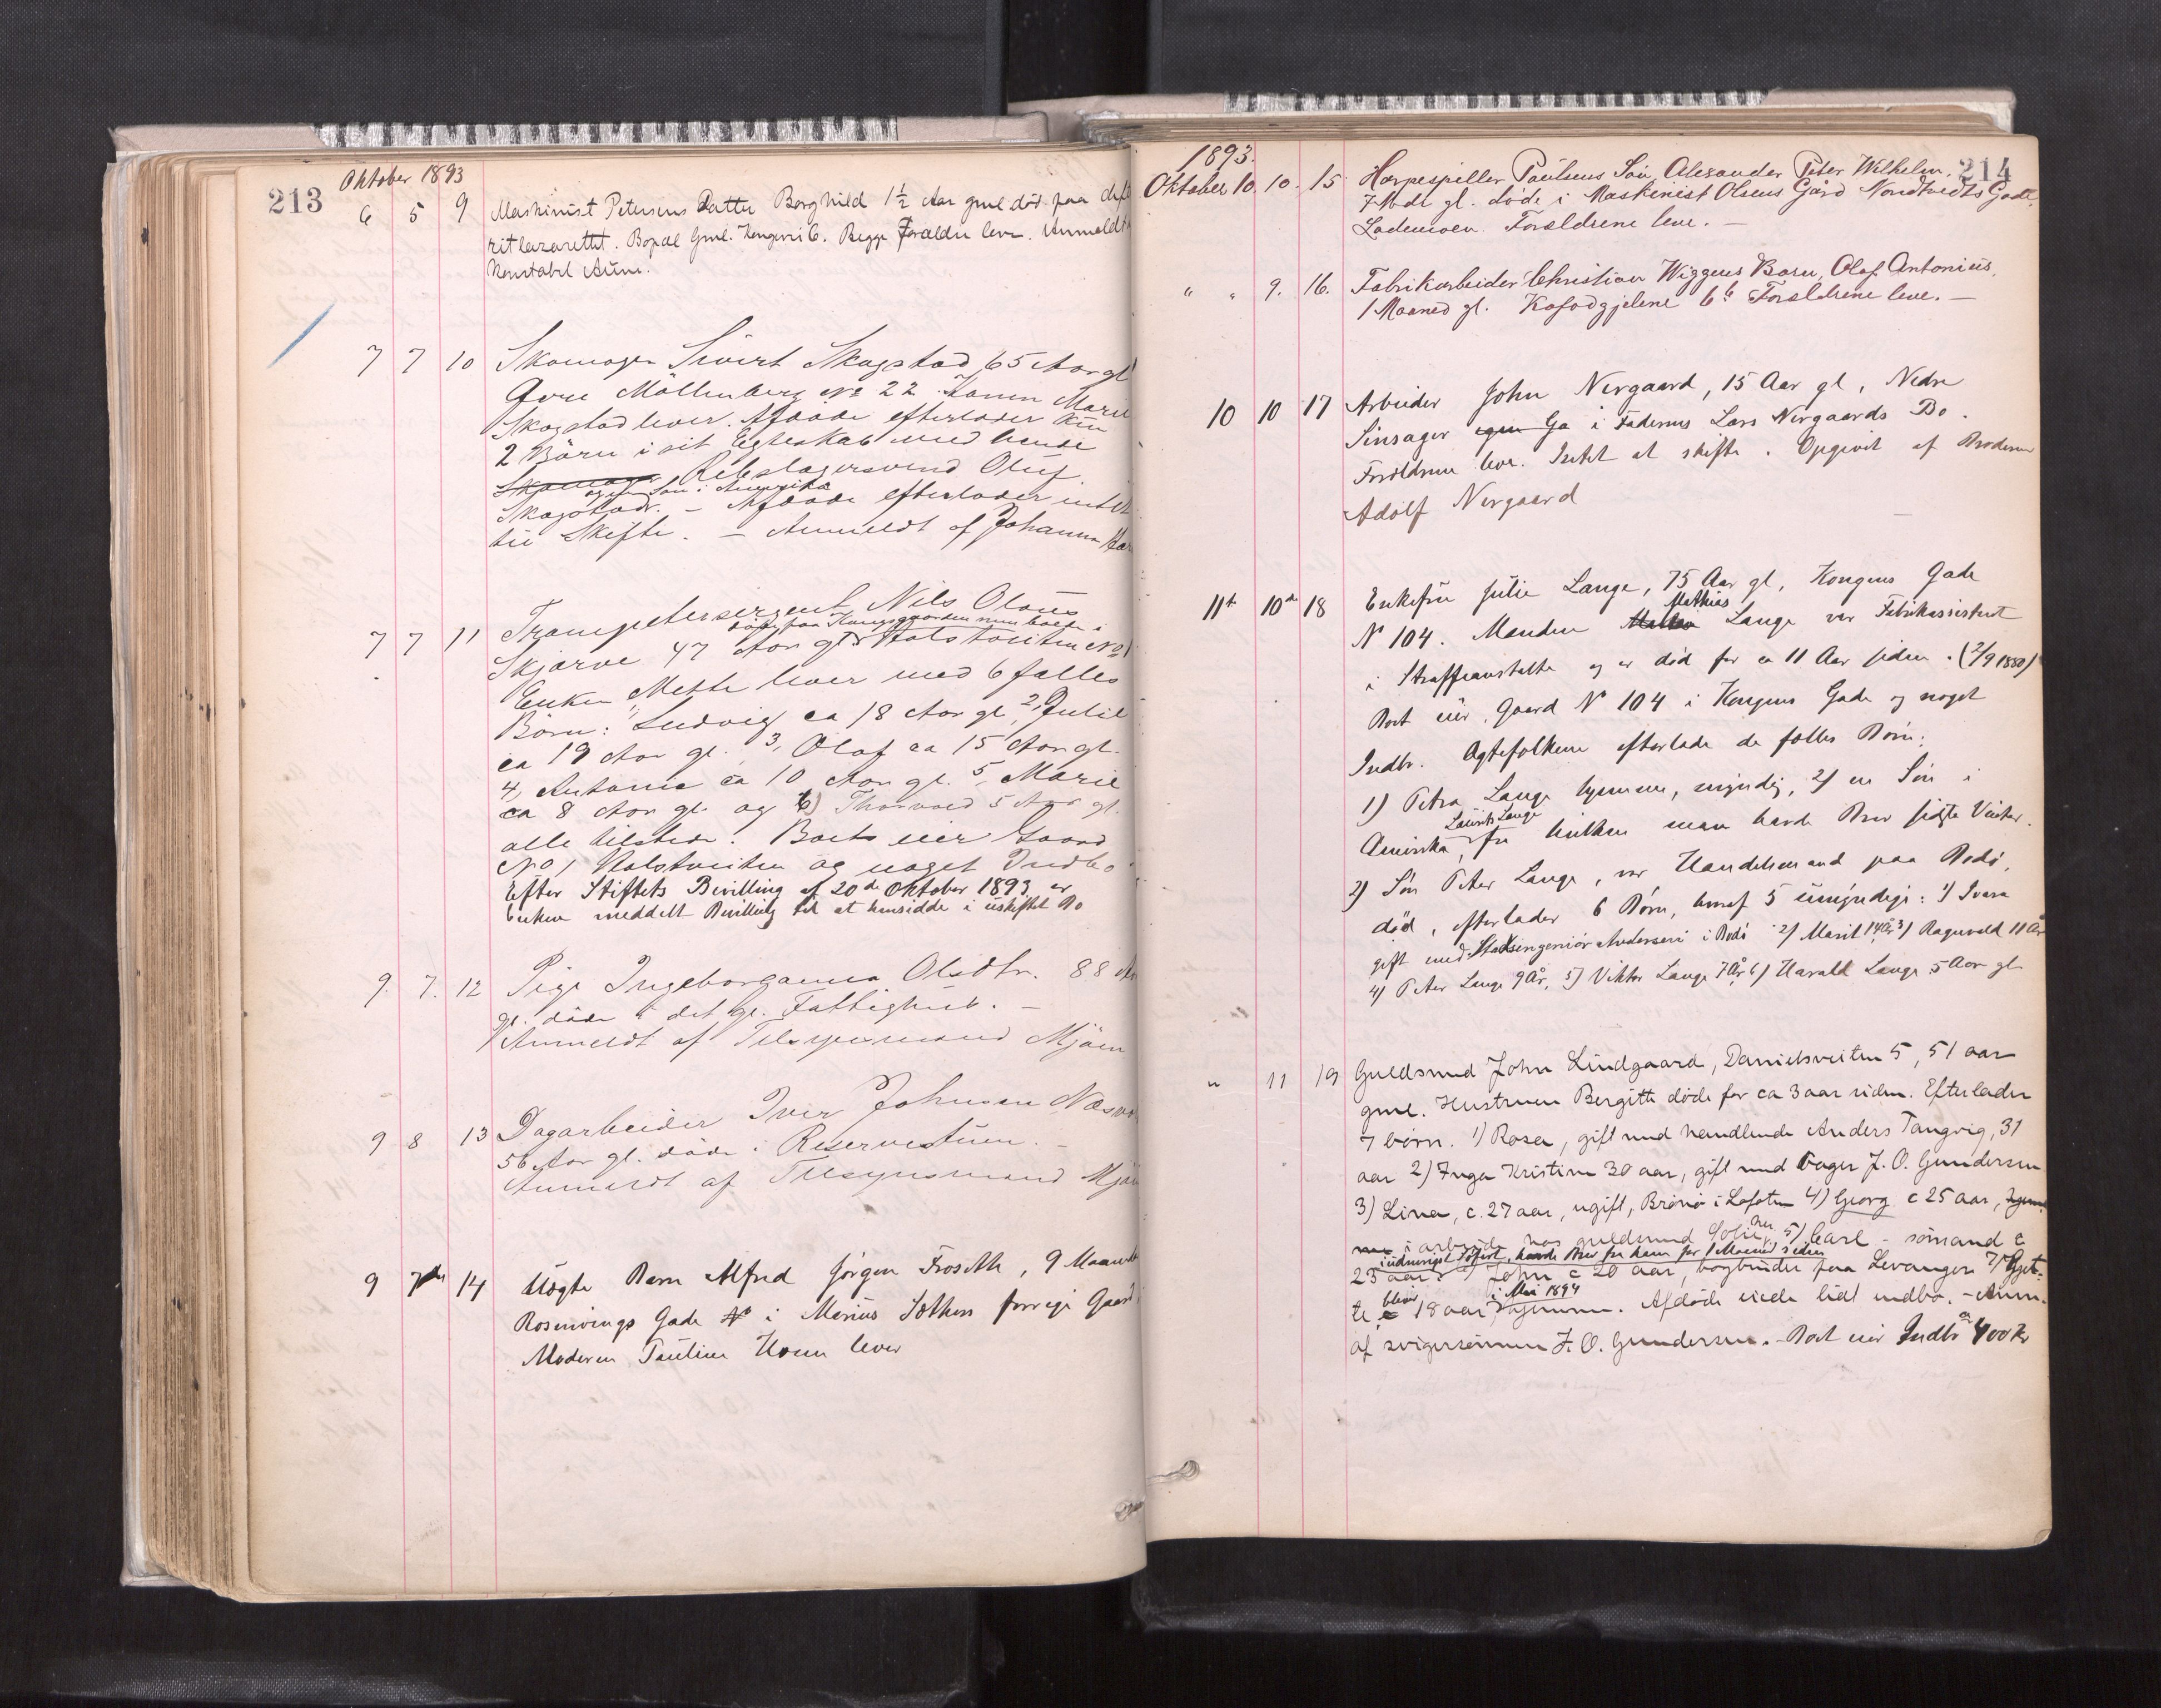 213
Oktober 1893
6 5 9 Maskinist Petersens Datter Borghild 1½ Aar gml død paa difte
ritlazarettet. Bopæl Gml. Kongevei 6. Begge Forældre lever. Anmeldt
Konstabel Aune.
7 7 10 Skomager Sivert Skogstad 65 Aar gl
Øvre Möllenberg No 22. Konen Marie
Skogstad lever. Afdøde efterlader kun
2 Börn i sit Egteskab med hende
Skomager Rebslagersvend Oluf
og en Sön i Amerika
Skogstad. – Afdøde efterlader intet
til Skifte. – Anmeldt af Johanna
7 7 11 Trompetersergent Nils Olaus
döde paa Kongsgaarden men boede i
Skjærve 47 Aar gl Nolstveiten No 1
Enken Mette lever med 6 fælles
Börn: 1, Ludvig ca 18 Aar gl 2, Julie
ca 19 Aar gl. 3, Olaf ca 15 Aar gl.
4, Antonie ca 10 Aar gl. 5, Marie
ca 8 Aar gl og 6) Thorvald 5 Aar gl.
alle tilstede. Boet eier Gaard
No 1 Nolstveiten og noget Indbo
Efter Stiftets Bevilling af 20de Oktober 1893 er
Enken meddelt Bevilling til at hensidde i uskiftet Bo
9. 7. 12 Pige Ingeborganna Olsdtr. 88 Aar
gl. döde i det gl. Fattighus. –
Anmeldt af Tilsynsmand Mjöen
9 8 13 Dagarbeider Iver Johnsen Næsvo
56 Aar gl. döde i Reservestuen. –
Anmeldt af Tilsynsmand Mjöen
9 7de 14 Uægte Barn Alfred Jörgen Froseth, 9 Maaneder
Rosenvings Gade N i Marius Sæthers forrige Gaard
Moderen Pauline Houm lever
214
1893.
Oktober 10. 10. 15 Harpespiller Paulsens Sön Alexander Peter Wilhelm,
7 Mdr gl. døde i Maskinist Olsens Gård Nordtvedts Gade,
Lademoen. Forældrene leve. –
" " 9. 16. Fabrikarbeider Christian Wiggens Barn, Olaf Antonius,
1 Maaned gl. Kafadgjelene 6b Forældrene leve. –
10 10 17 Arbeider John Nergaard, 15 Aar gl, Nedre
Sinsager egen Ga i Faderens Lars Nergaards Bo.
Forældrene leve. Intet at skifte. Opgivet af Broderen
Adolf Nergaard
11te 10de 18 Enkefru Julie Lange, 75 Aar gl, Kongens Gade
Mathias
N 104. Manden Lange var Fabrikassistent
i Straffeanstalten og er död for ca 11 Aar siden. (2/9 1880)
Boet eier, Gaard N 104 i Kongens Gade og noget
Indbo. Ægtefolkene efterlade de fælles Börn:
1) Petra Lange hjemme, myndig, 2) en Sön i
Laurits Lange
Amerika, fra hvilken man havde Brev sidste Vinter.
2) Sön Peter Lange, var Handelsmand paa Bodö,
död, efterlader 6 Börn, hvoraf 5 umyndige: 1) Svava
gift med Stadsingeniör Andersen i Bodö 2) Marit 14 År 3) Ragnvald 11 År
4) Peter Lange 9 År, 5) Viktor Lange 7 År 6) Harald Lange 5 Aar gl
" 11 19 Guldsmed John Lindgaard, Danielsveiten 5, 51 aar
gml. Hustruen Bergitte døde for ca 3 aar siden. Efterlader
7 børn. 1) Rosa, gift med handlende Anders Tangvig, 31
aar 2) Inga Kristine 30 aar, gift med Bager J. O. Gundersen
3) Lina, c. 27 aar, ugift, Brönö i Lofoten 4) Georg c 25 aar, hjem
me i arbeide hos guldsmed 5) Carl – sömand c
i udenrigst Søfart, havde Brev fra ham for 1 Maaned siden
23 aar. 6) John c 20 aar, bogbinder paa Levanger 7) Gjet-
bliver i Mai 1894
te c 18 aar, hjemme. Afdöde eiede lidt indbo. – Anm.
af svigersönnen J. O. Gundersen. – Boet eier Indbo ca 400 Kr